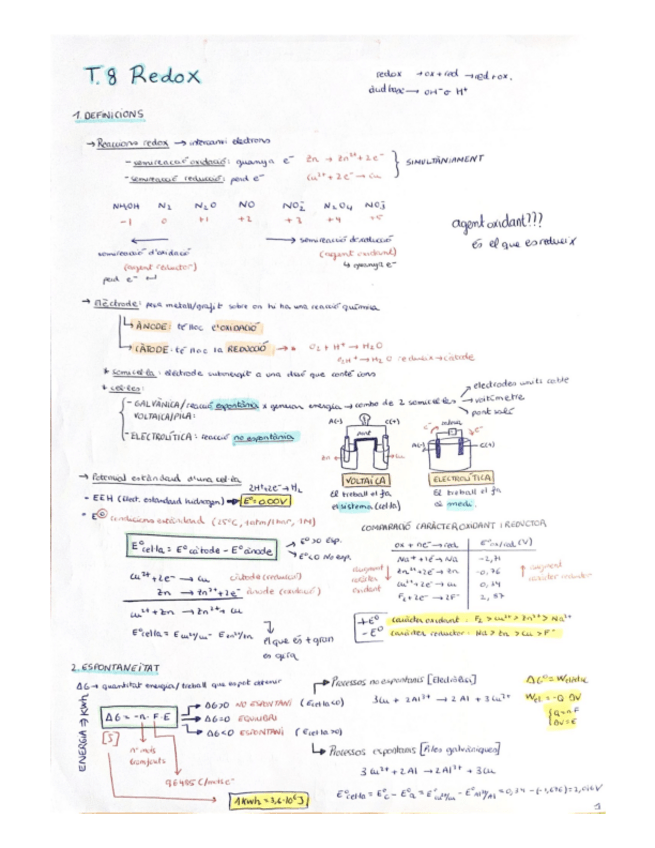 T.8 Redox
redox → ox + red → red + ox.
àcid base → OH⁻ o H⁺
1. DEFINICIONS
→ Reaccions redox → intercanvi electrons
- semireacció oxidació: guanya e⁻ Zn → Zn²⁺ + 2e⁻
- semireacció reducció: perd e⁻ Cu²⁺ + 2e⁻ → Cu
SIMULTÀNIAMENT
NH₂OH N₂ N₂O NO NO₂⁻ N₂O₄ NO₃⁻
-1 0 +1 +2 +3 +4 +5
agent oxidant???
És el que es redueix
semireacció d'oxidació
(agent reductor)
perd e⁻
semireacció de reducció
(agent oxidant)
↳ guanya e⁻
→ Elèctrode: peça metall/grafit sobre on hi ha una reacció química
ÀNODE: té lloc l'OXIDACIÓ
CÀTODE: té lloc la REDUCCIÓ → O₂ + H⁺ → H₂O
H⁺ → H₂O redueix → càtode
* semicel·la: elèctrode submergit a una dissó que conté ions
* cel·les:
- GALVÀNICA/ reacció espontània x generar energia → combo de 2 semicel·les
VOLTAICA/PILA:
→ electrodes units cable
→ voltímetre
→ pont salí
- ELECTROLÍTICA: reacció no espontània
A(-) C(+)
Zn Cu
VOLTAICA
El treball el fa
el sistema (cel·la)
e⁻ e⁻
A(-) C(+)
ELECTROLÍTICA
El treball el fa
el medi.
→ Potencial estàndard d'una cel·la
2H⁺ + 2e⁻ → H₂
- EEH (Elect. estàndard hidrogen) → E° = 0.00V
- E° condicions estàndard (25°C, 1atm/1bar, 1M)
E°cel·la = E°càtode - E°ànode
E°>0 Esp.
E°<0 No esp.
Cu²⁺ + 2e⁻ → Cu càtode (reducció)
Zn → Zn²⁺ + 2e⁻ ànode (oxidació)
Cu²⁺ + Zn → Zn²⁺ + Cu
E°cel·la = E Cu²⁺/Cu - E Zn²⁺/Zn
el que és + gran
COMPARACIÓ CARÀCTER OXIDANT I REDUCTOR
ox + ne⁻ → red E°ox/red (V)
Na⁺ + 1e⁻ → Na -2,71
Zn²⁺ + 2e⁻ → Zn -0,76
Cu²⁺ + 2e⁻ → Cu 0,34
F₂ + 2e⁻ → 2F⁻ 2,87
augment caràcter oxidant
augment caràcter reductor
+E° caràcter oxidant: F₂ > Cu²⁺ > Zn²⁺ > Na⁺
-E° caràcter reductor: Na > Zn > Cu > F⁻
2. ESPONTANEÏTAT
ΔG → quantitat energia/ treball que es pot obtenir
ENERGIA ⇒ KWh
ΔG = -n·F·E
[J]
nº mols
96485 C/mol e⁻
ΔG>0 NO ESPONTANI (Ecel·la<0)
ΔG=0 EQUILIBRI
ΔG<0 ESPONTANI (Ecel·la>0)
1 KWh = 3,6·10⁶ J
Processos no espontanis [Electròlisi]
3Cu + 2Al³⁺ → 2Al + 3Cu²⁺
Processos espontanis [Piles galvàniques]
3Cu²⁺ + 2Al → 2Al³⁺ + 3Cu
E°cel·la = E°c - E°a = E°Cu²⁺/Cu - E°Al³⁺/Al = 0,34 - (-1,676) = 2,016V
ΔG° = Welèctric
Wel = -Q·ΔV
Q = n·F
ΔV = E